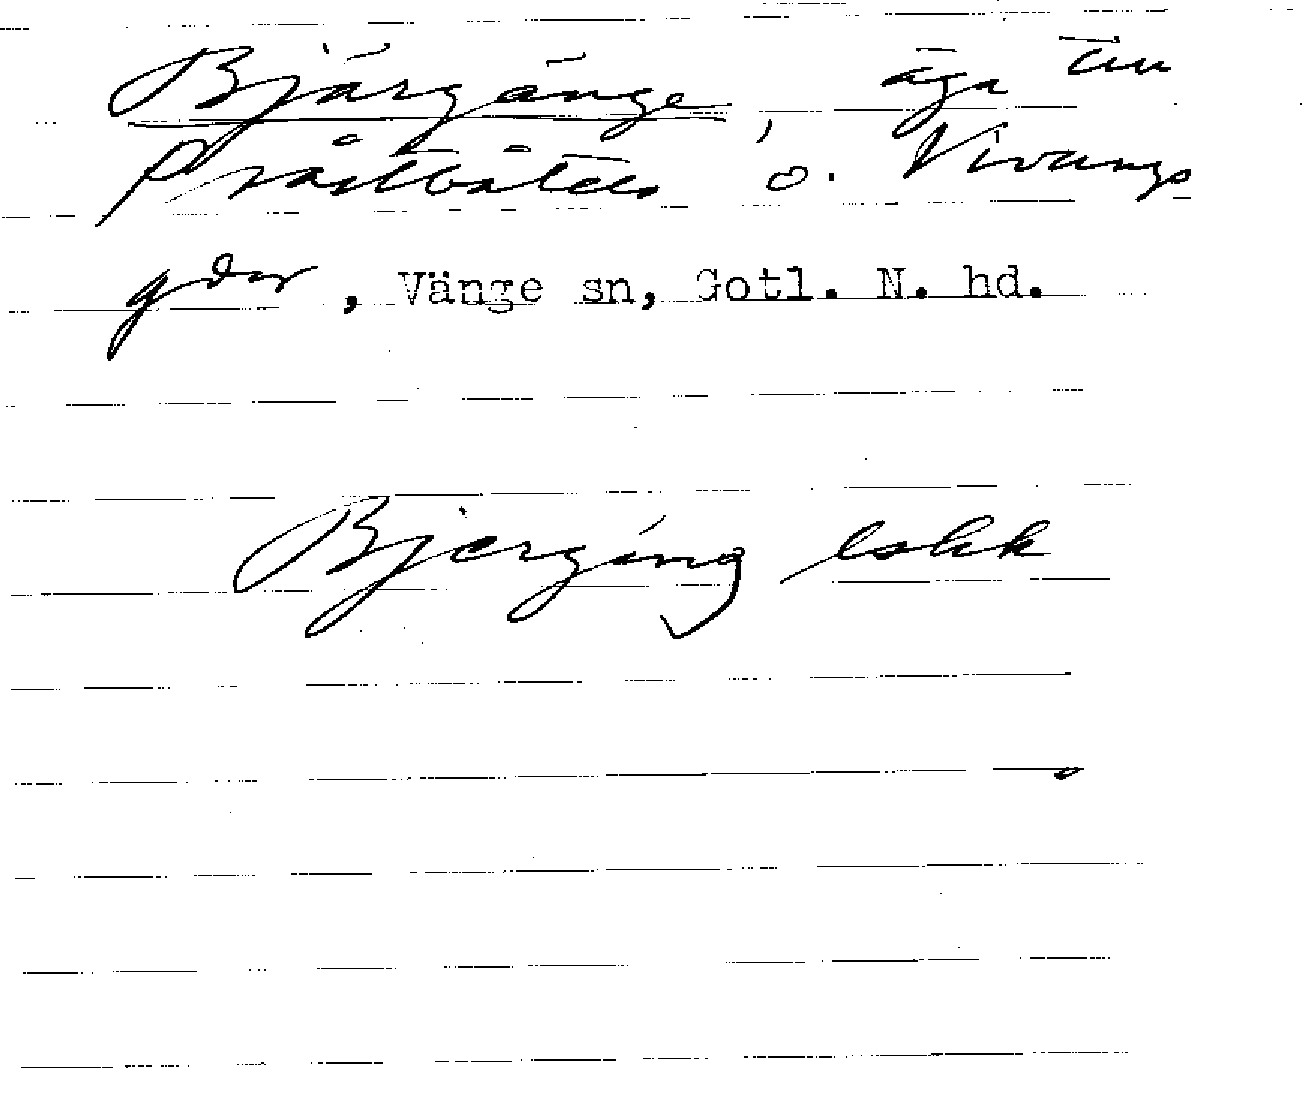 Bjärgänge, äga till
Prästbåtels o. Vivungs
gdar, Vänge sn, Gotl. N. hd.
Bjèrgáng